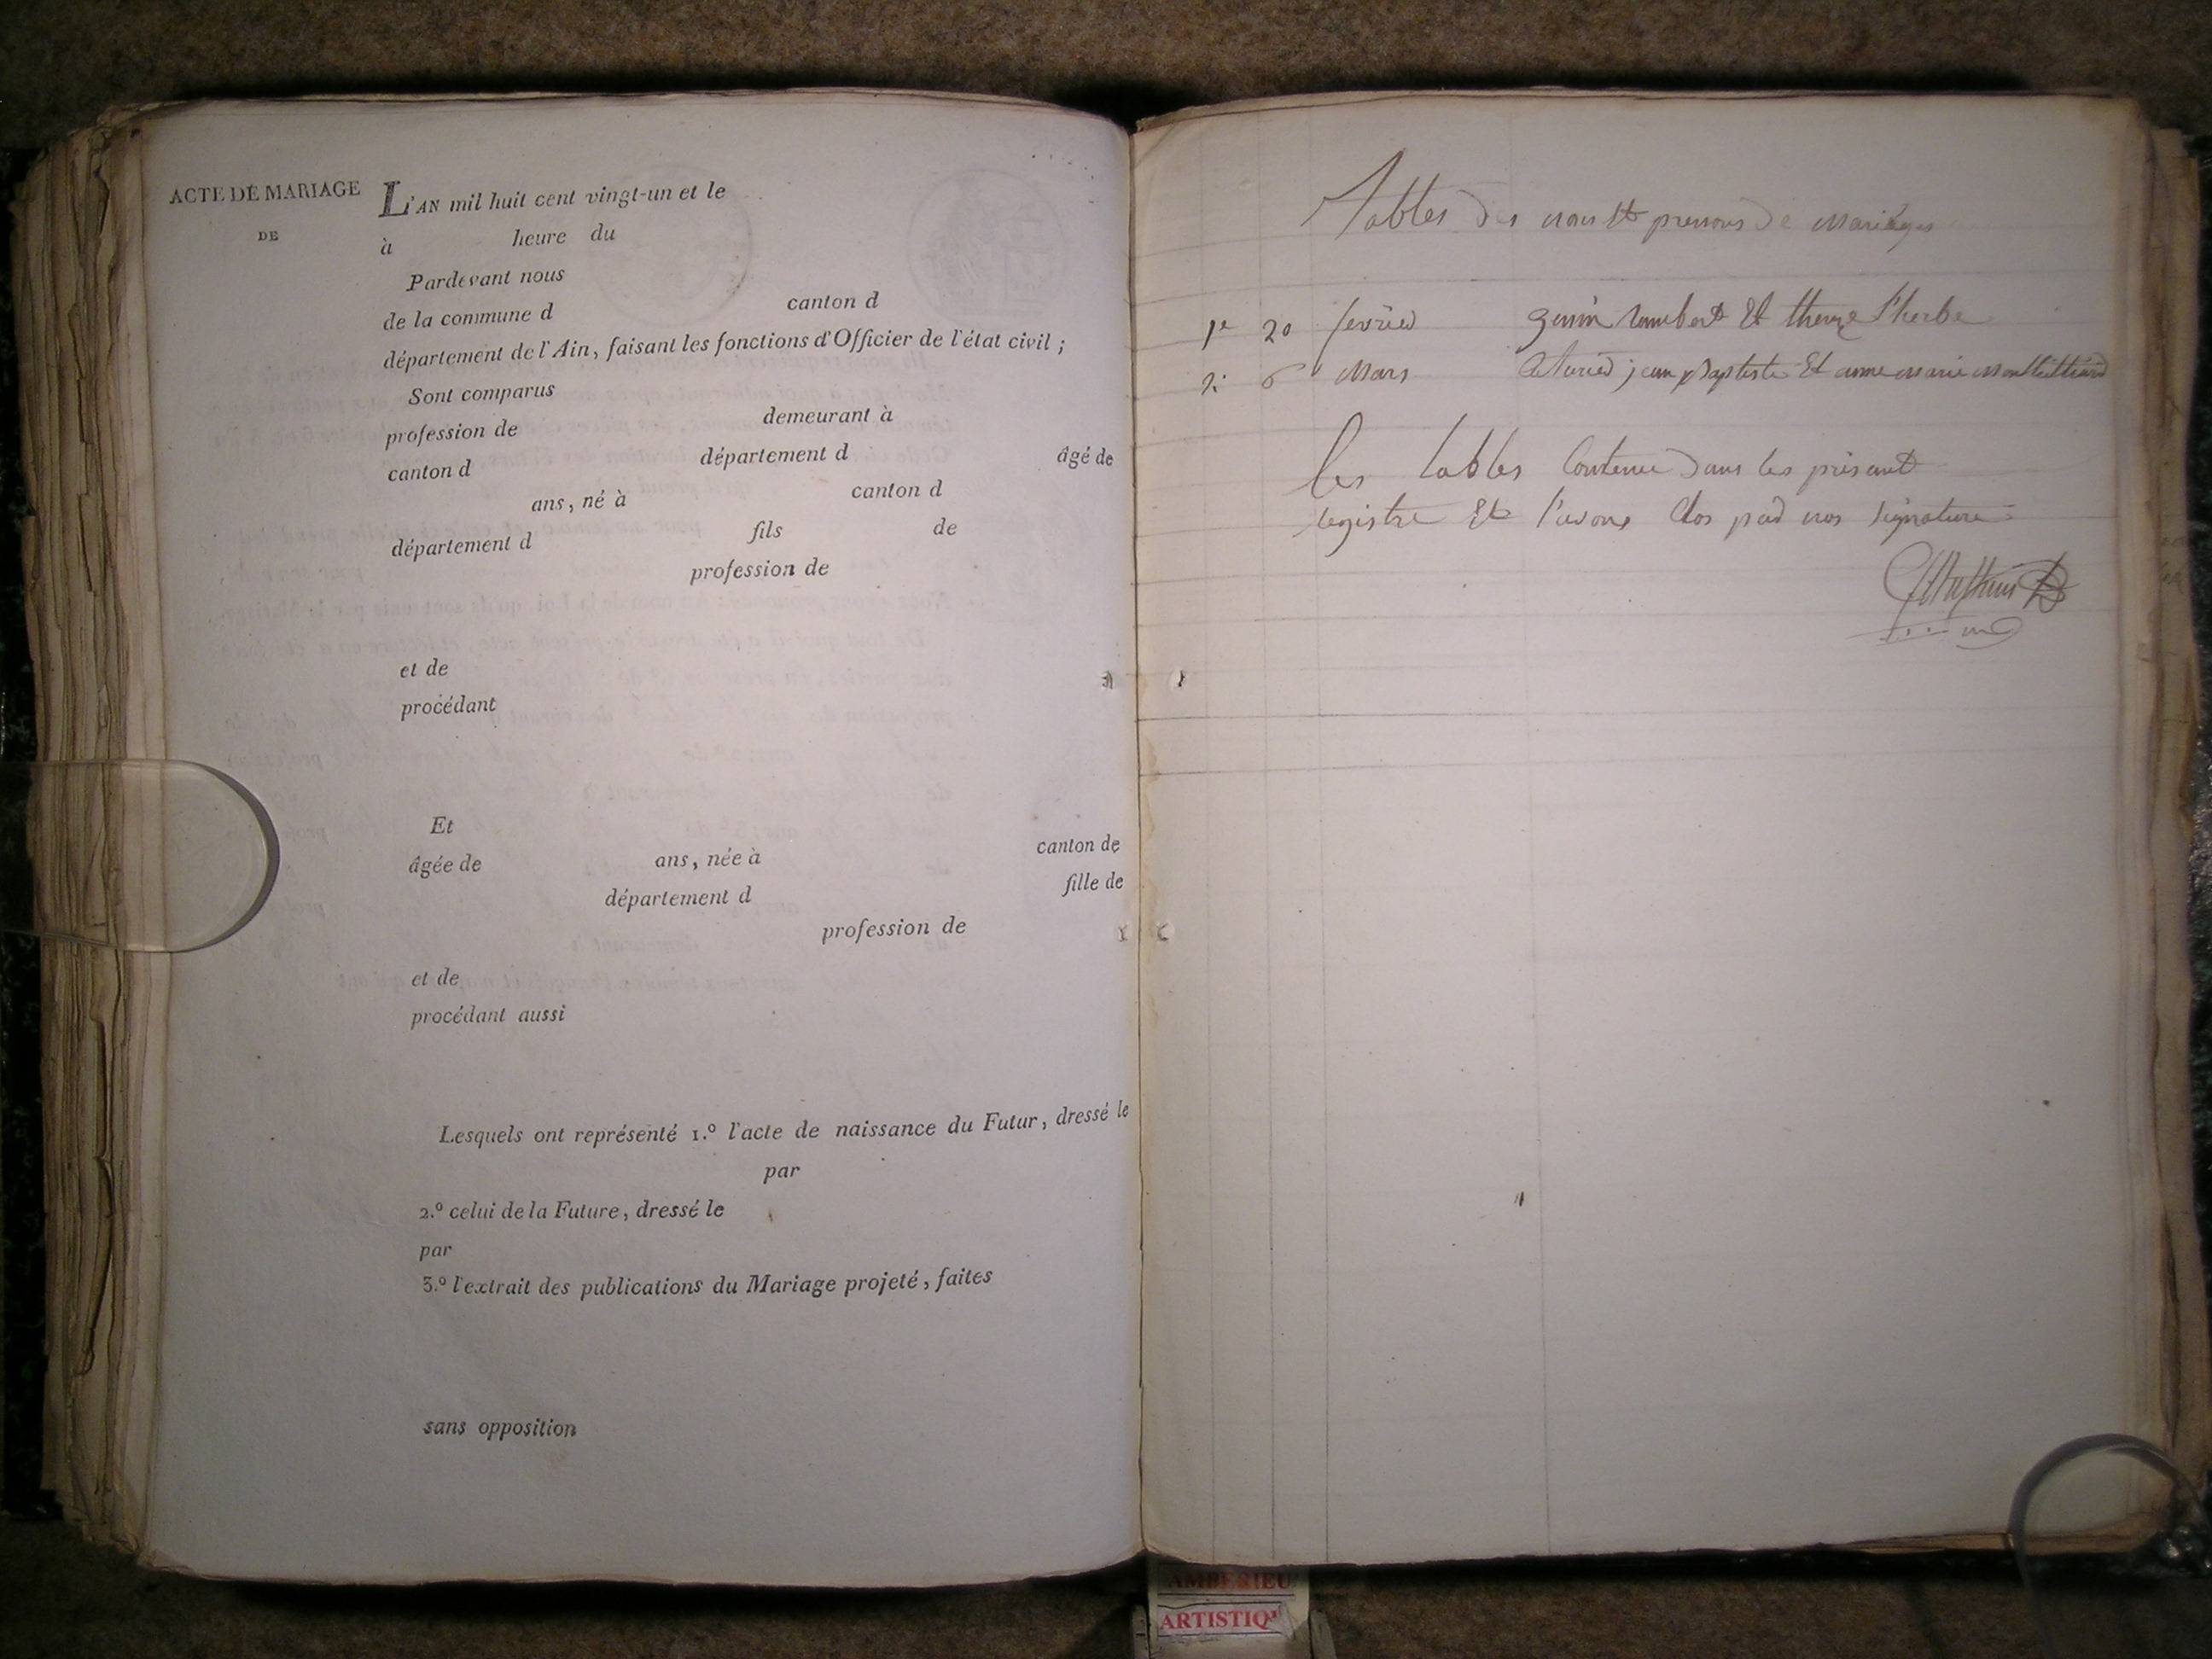 ACTE DE MARIAGE
DE
L'AN mil huit cent vingt-un et le
à heure du
Pardevant nous
de la commune d canton d
département de l'Ain, faisant les fonctions d'Officier de l'état civil ;
Sont comparus
profession de demeurant à
canton d département d âgé de
ans, né à canton d
département d fils de
profession de
et de
procédant
Et
âgée de ans, née à canton de
département d fille de
profession de
et de
procédant aussi
Lesquels ont représenté 1.º l'acte de naissance du Futur, dressé le
par
2.º celui de la Future, dressé le
par
3.º l'extrait des publications du Mariage projeté, faites
sans opposition
Tables des noms Et prenoms de Mariages
1e 20 fevrier Et l'herbe
2: 6 Mars jean Baptiste Et anne Marie
les tables Contenue dans les présent
registre Et l'avons Clos par nos signature
AMBERIEU
ARTISTIQ